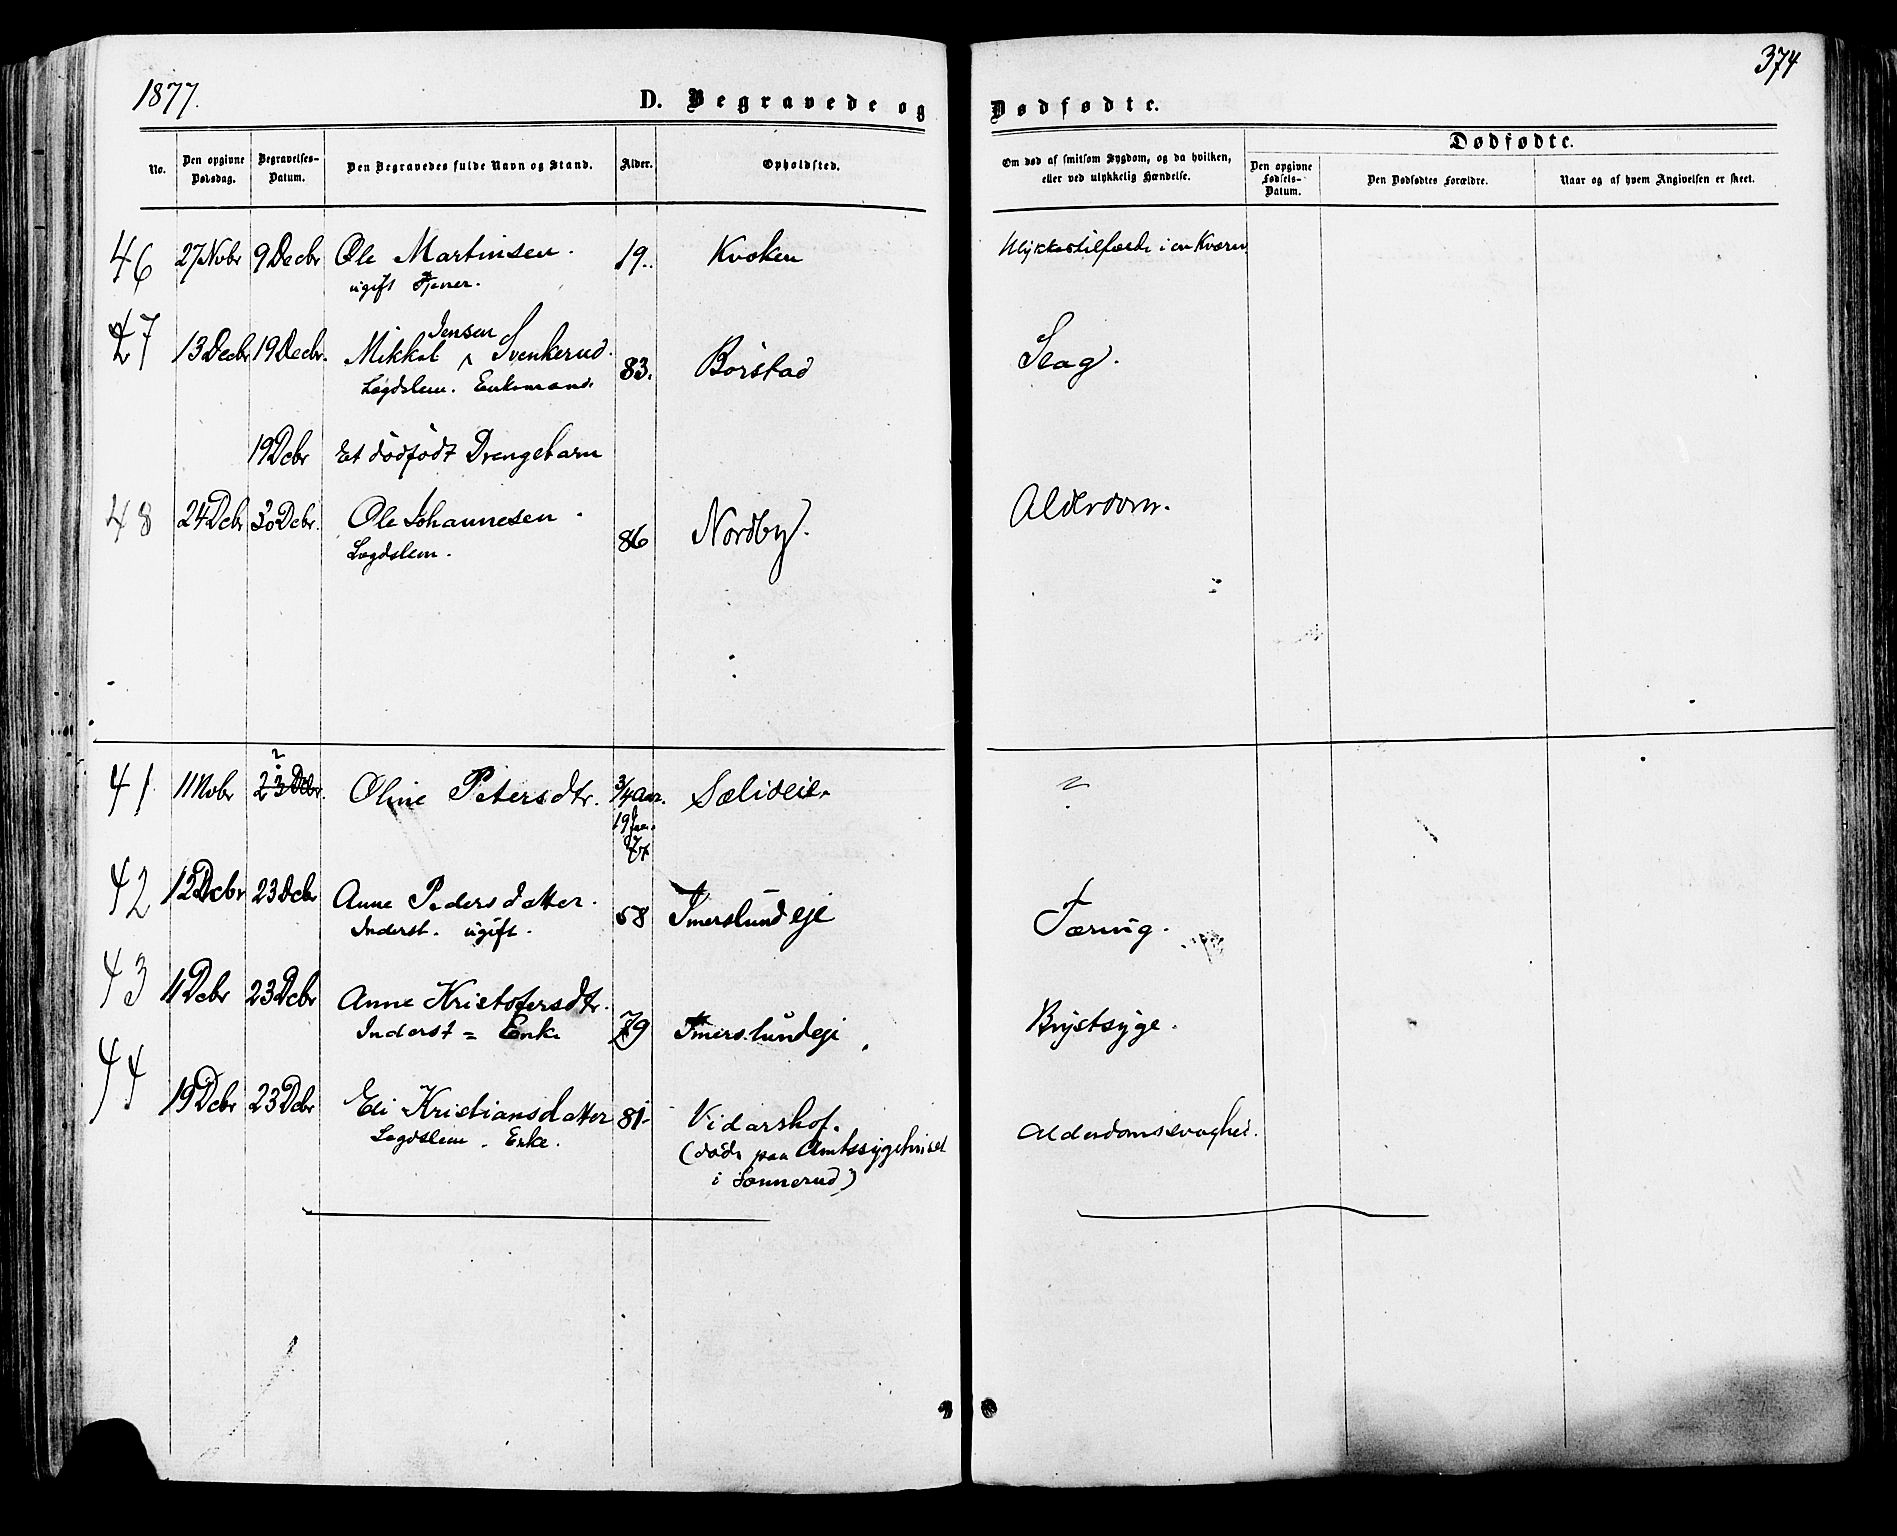 1877.
374
D. Begravede og Dødfødte.
No.
Den opgivne Dødsdag.
Begravelses-Datum.
Den Begravedes fulde Navn og Stand.
Alder.
Opholdsted.
Om død af smitsom Sygdom, og da hvilken, eller ved ulykkelig Hændelse.
Dødfødte.
Den opgivne Fødsels-Datum.
Den Dødfødtes Forældre.
Naar og af hvem Angivelsen er skeet.
46 27 Novbr 9 Decbr Ole Martinsen. 19. Kvoken Ulykkestilfælde i en Kværn.
ugift Tjener.
47 13 Decbr 19 Decbr. Mikkel Jensen Svenkerud. 83. Börstad Slag.
Lægdslem. Enkemand.
19 Dcbr Et dödfödt Drengebarn
48 24 Dcbr 30 Dcbr. Ole Johannesen. 86 Nordby. Alderdom.
Lægdslem.
41 11 Novbr 23 Dcbr. ? Oline Petersdtr. 3/4 Aar. Sælideie. ?
19 Jan. 77
42 12 Dcbr 23 Dcbr Anne Pedersdatter. 58 Imerslundeje Tæring.
Inderst. ugift.
43 11 Dcbr 23 Dcbr Anne Kristofersdtr. 79 Imerslundeje Brystsyge.
Inderst = Enke
44 19 Dcbr 23 Dcbr Eli Kristiansdatter 81. Vidarshof. Alderdomssvaghed.
Lægdslem. Enke.
(döde paa Amtssygehuset
i Sannerud)